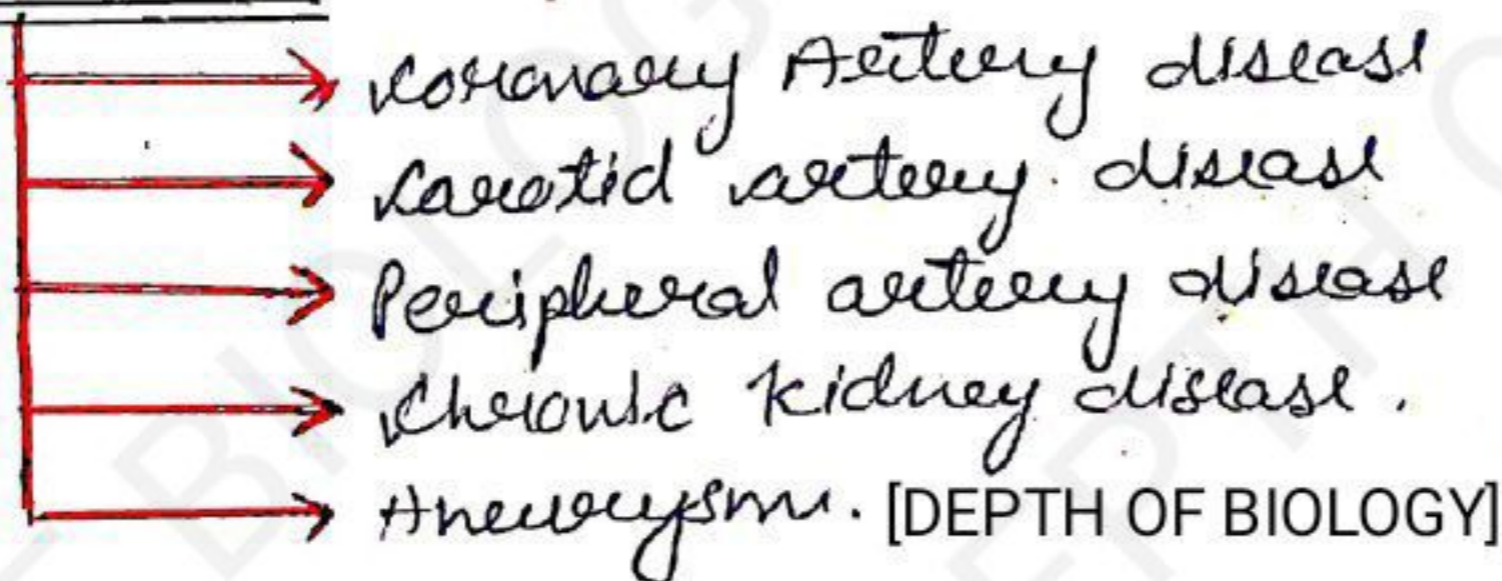 Coronary Artery disease
Carotid artery disease
Peripheral artery disease
Chronic kidney disease.
Aneurysm. [DEPTH OF BIOLOGY]